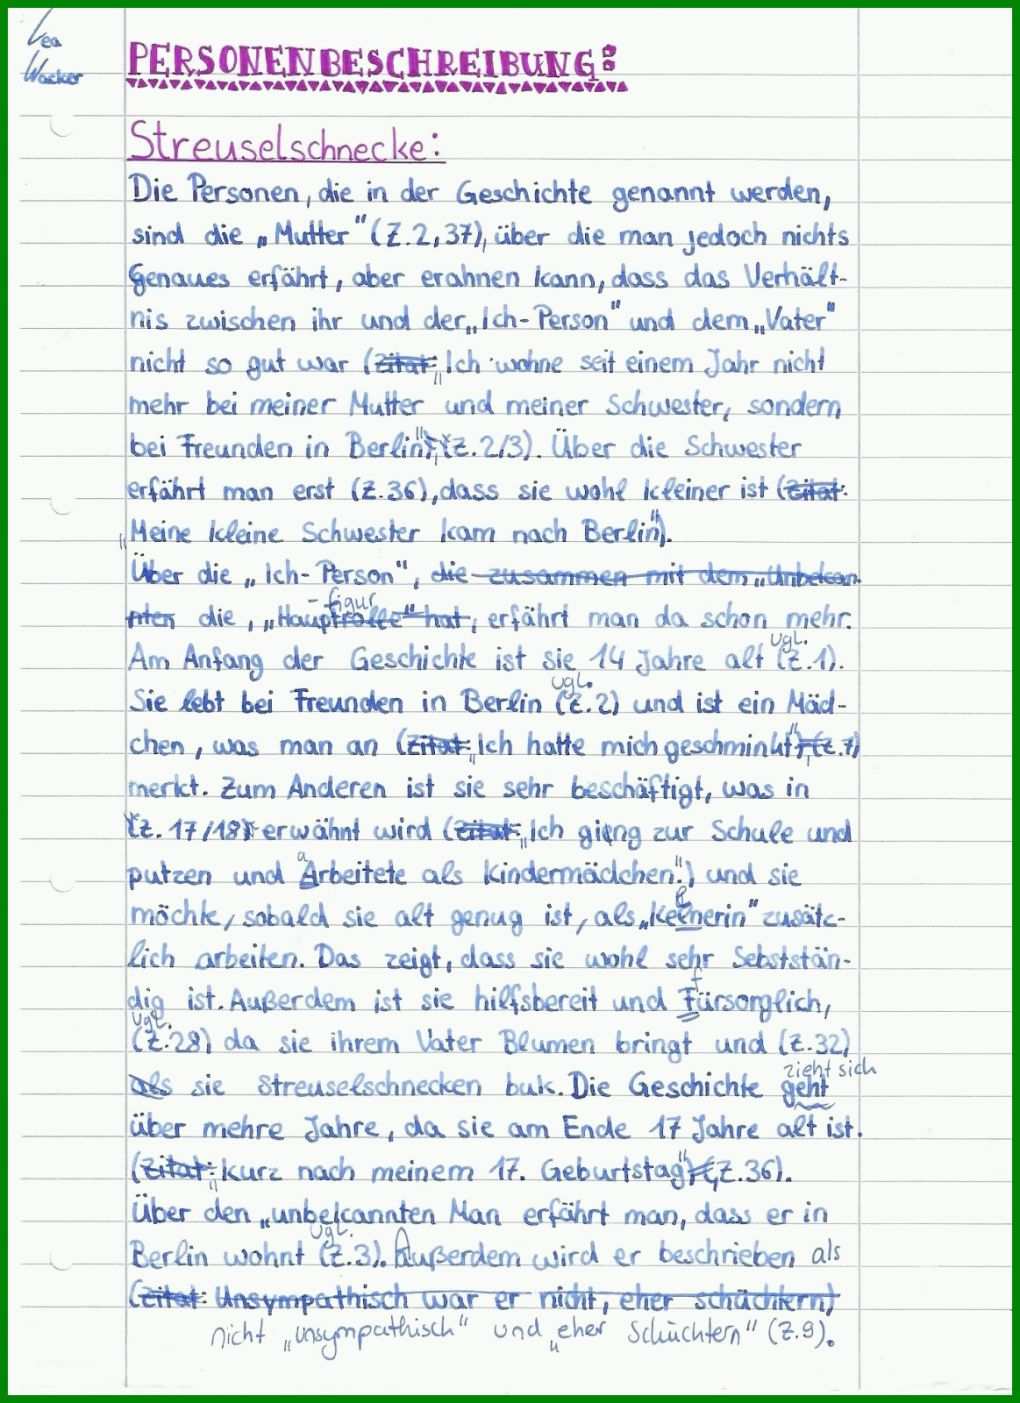 Lea
Wacker
PERSONENBESCHREIBUNG:
Streuselschnecke:
Die Personen, die in der Geschichte genannt werden,
sind die „Mutter" (Z.2,37), über die man jedoch nichts
Genaues erfährt, aber erahnen kann, dass das Verhält-
nis zwischen ihr und der „Ich-Person" und dem „Vater"
nicht so gut war (Zitat: „Ich wohne seit einem Jahr nicht
mehr bei meiner Mutter und meiner Schwester, sondern
bei Freunden in Berlin", (Z.2/3). Über die Schwester
erfährt man erst (Z.36), dass sie wohl kleiner ist (Zitat:
„Meine kleine Schwester kam nach Berlin").
Über die „Ich-Person", die zusammen mit dem „Unbekan
nten die, „Hauptrolle" hat, erfährt man da schon mehr.
-figur
Am Anfang der Geschichte ist sie 14 Jahre alt (vgl. Z.1).
Sie lebt bei Freunden in Berlin (vgl. Z.2) und ist ein Mäd-
chen, was man an (Zitat: „Ich hatte mich geschminkt", (Z.7)
merkt. Zum Anderen ist sie sehr beschäftigt, was in
(Z.17/18) erwähnt wird (Zitat: „Ich gieng zur Schule und
putzen und Arbeitete als Kindermädchen.") und sie
a
möchte, sobald sie alt genug ist, als „Kelnerin" zusätz-
l
lich arbeiten. Das zeigt, dass sie wohl sehr Sebststän-
dig ist. Außerdem ist sie hilfsbereit und Fürsorglich,
f
(vgl. Z.28) da sie ihrem Vater Blumen bringt und (Z.32)
als sie Streuselschnecken buk. Die Geschichte geht
zieht sich
über mehre Jahre, da sie am Ende 17 Jahre alt ist.
(Zitat: „kurz nach meinem 17. Geburtstag", (Z.36).
Über den „unbekannten Man erfährt man, dass er in
Berlin wohnt (vgl. Z.3). Außerdem wird er beschrieben als
(Zitat: Unsympathisch war er nicht, eher schüchtern)
nicht „unsympathisch" und „eher Schüchtern" (Z.9).